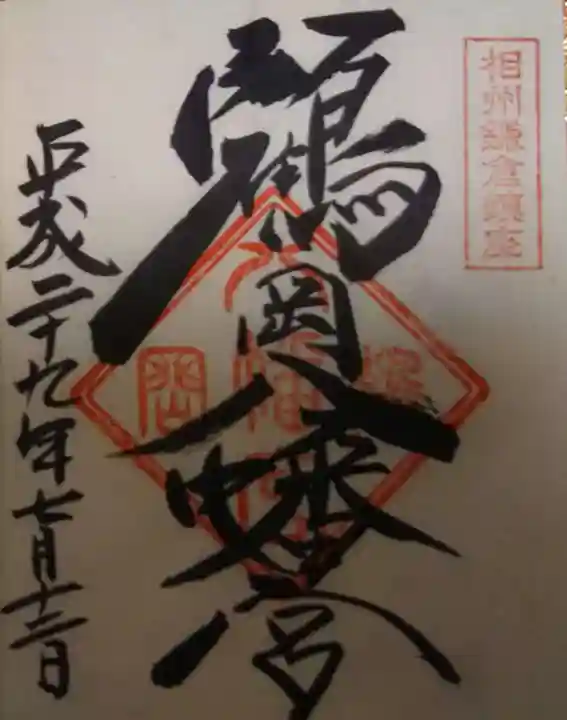 相州鎌倉鎮座
鶴岡八幡宮
平成二十九年七月十三日